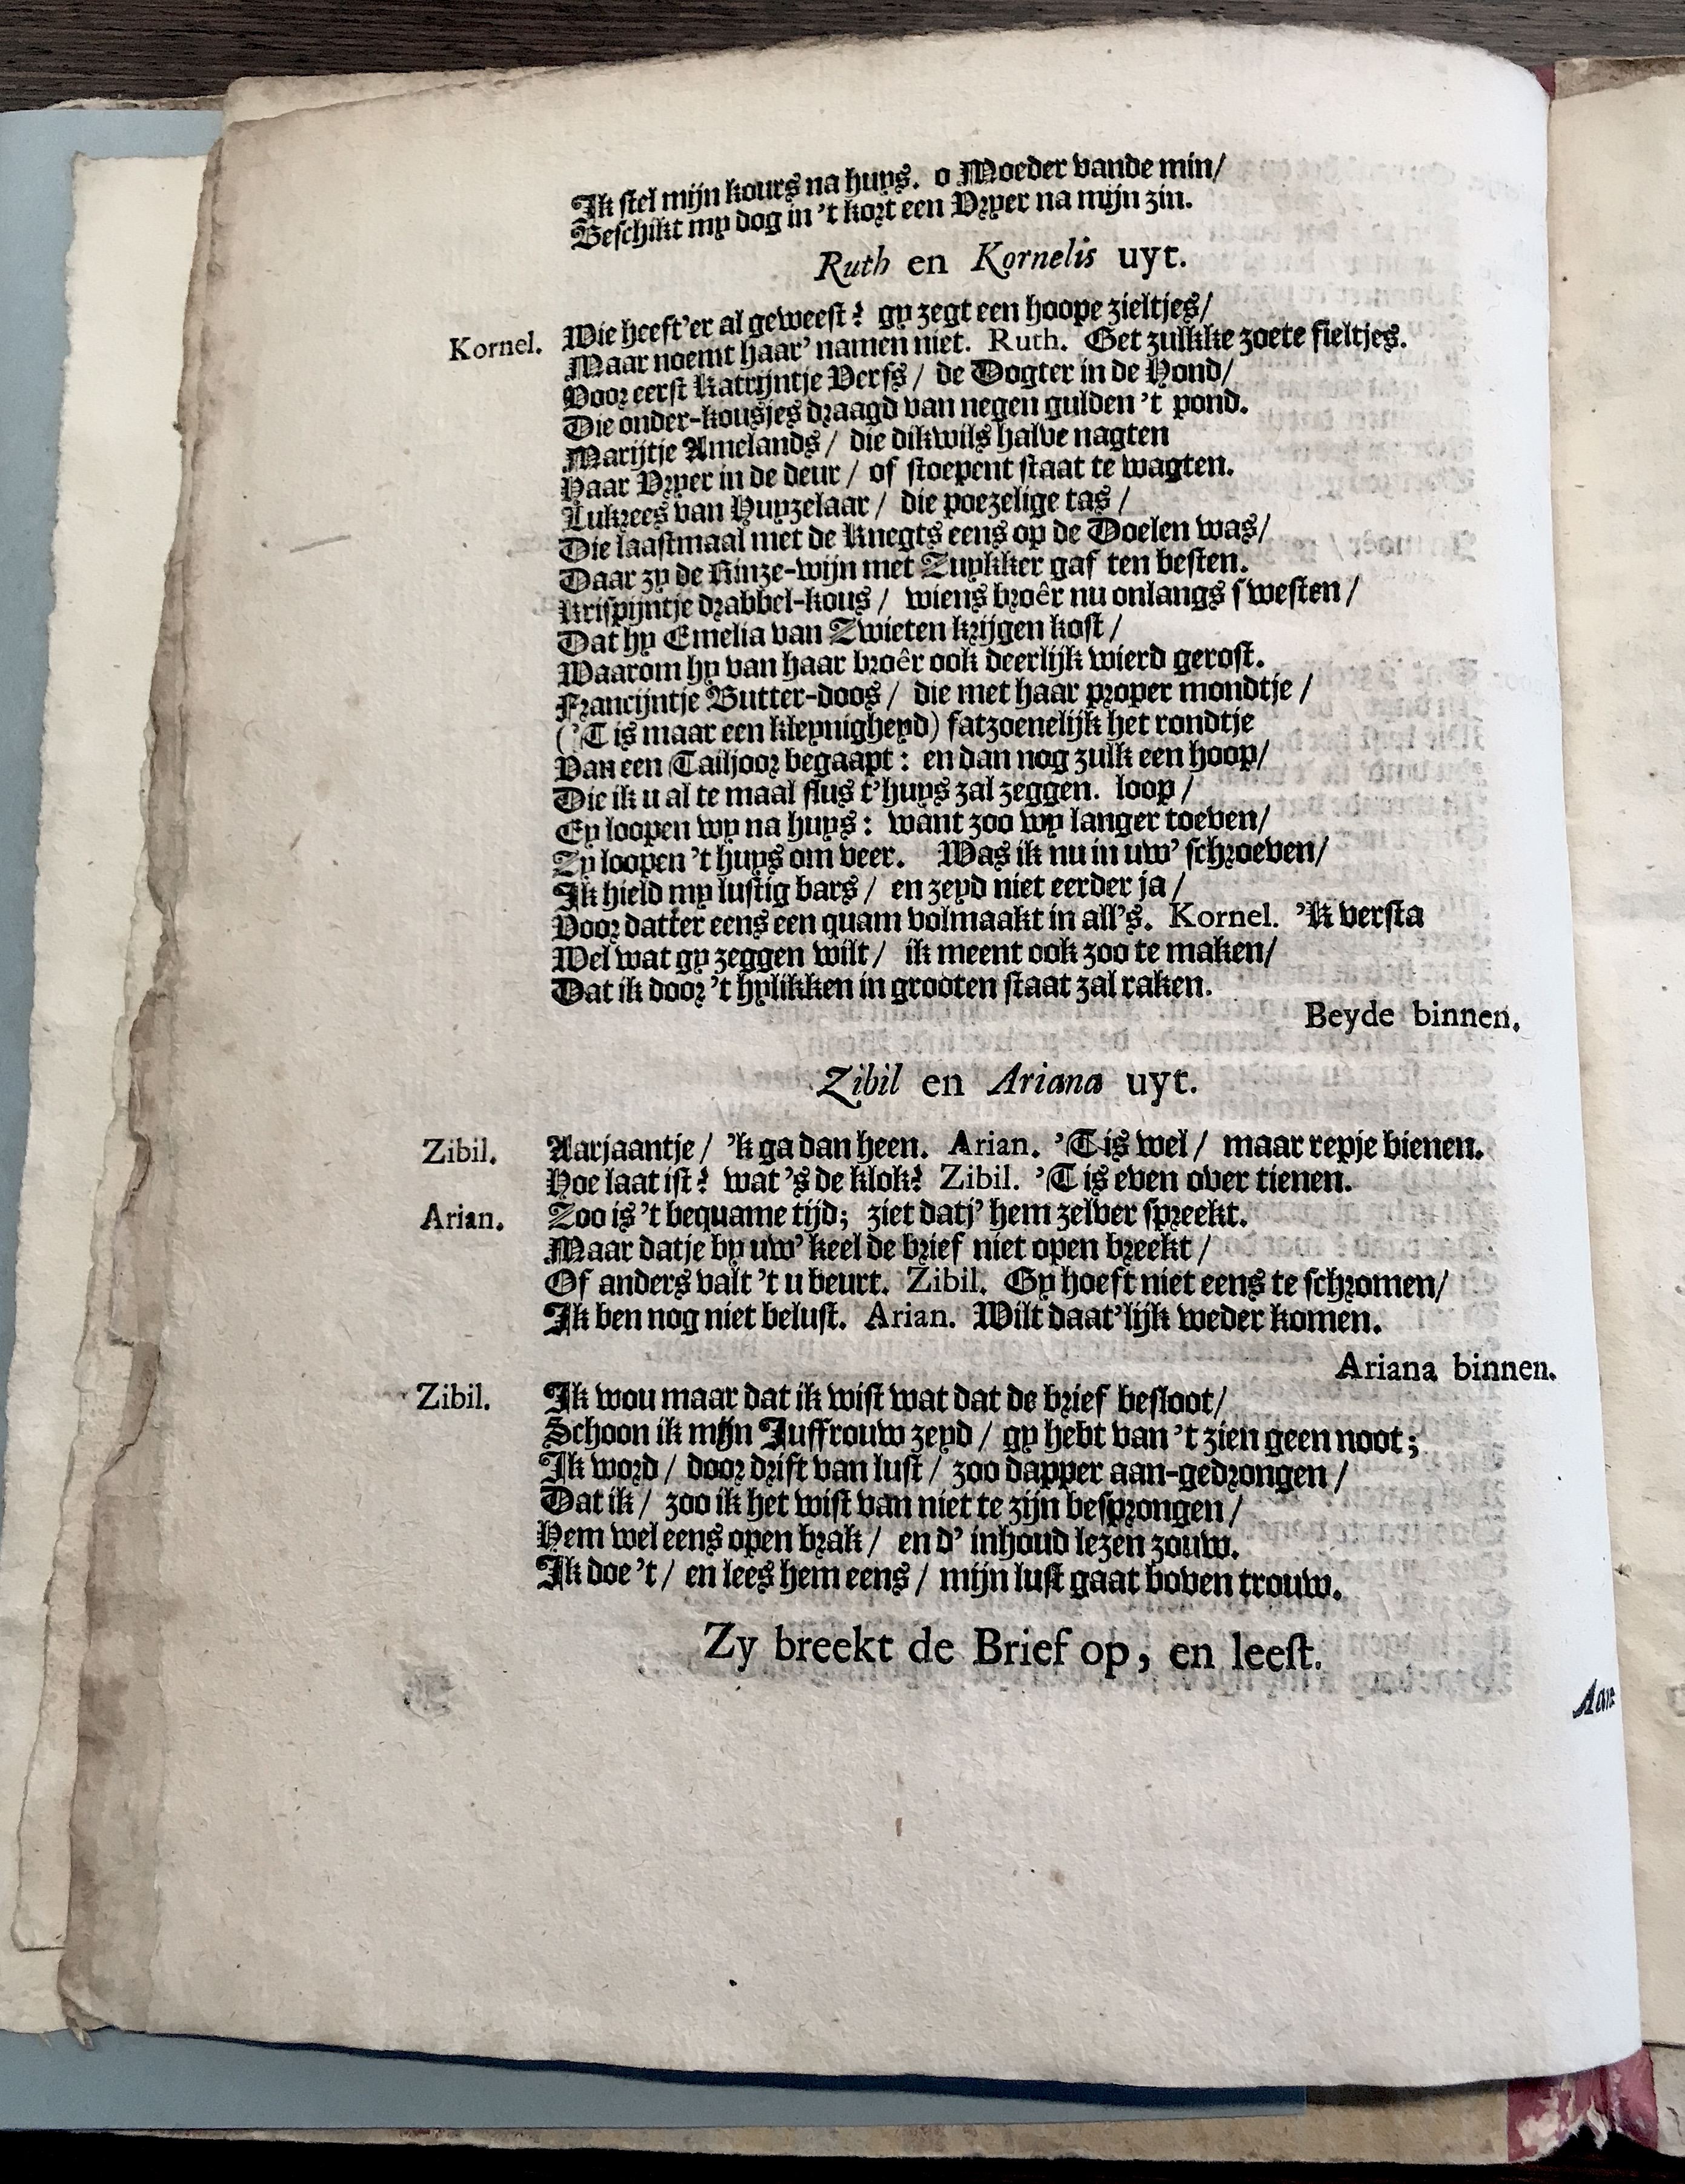 Ik stel mijn kours na huys. o Moeder vande min/
Beschikt my dog in 't kort een Vryer na mijn zin.
Ruth en Kornelis uyt.
Kornel. Wie heeft'er al geweest? gy zegt een hoope zieltjes/
Maar noemt haar' namen niet. Ruth. Get zulkke zoete fieltjes.
Voor eerst Katrijntje Verfs / de Dogter in de Hond/
Die onder-kousjes draagd van negen gulden 't pond.
Marijtje Amelands / die dikwils halve nagten
Haar Vryer in de deur / of stoepent staat te wagten.
Lukrees van Huyzelaar / die poezelige tas /
Die laastmaal met de Knegts eens op de Doelen was/
Daar zy de Rinze-wijn met Zuykker gaf ten besten.
Krispijntje drabbel-kous / wiens broêr nu onlangs s'westen /
Dat hy Emelia van Zwieten krijgen kost /
Waarom hy van haar broêr ook deerlijk wierd gerost.
Francijntje Butter-doos / die met haar proper mondtje /
('T is maar een kleynigheyd) fatzoenelijk het rondtje
Van een Tailjoor begaapt : en dan nog zulk een hoop/
Die ik u al te maal flus t'huys zal zeggen. loop /
Ey loopen wy na huys : want zoo wy langer toeven/
Zy loopen 't huys om veer. Was ik nu in uw' schroeven/
Ik hield my lustig bars / en zeyd niet eerder ja /
Voor datter eens een quam volmaakt in all's. Kornel. 'K versta
Wel wat gy zeggen wilt / ik meent ook zoo te maken/
Dat ik door 't hylikken in grooten staat zal raken.
Beyde binnen.
Zibil en Ariana uyt.
Zibil. Aarjaantje / 'k ga dan heen. Arian. 'T is wel / maar repje bienen.
Hoe laat ist? wat 's de klok? Zibil. 'T is even over tienen.
Arian. Zoo is 't bequame tijd; ziet datj' hem zelver spreekt.
Maar datje by uw' keel de brief niet open breekt /
Of anders valt 't u beurt. Zibil. Gy hoeft niet eens te schromen/
Ik ben nog niet belust. Arian. Wilt daat'lijk weder komen.
Ariana binnen.
Zibil. Ik wou maar dat ik wist wat dat de brief besloot/
Schoon ik mijn Juffrouw zeyd / gy hebt van 't zien geen noot;
Ik word / door drift van lust / zoo dapper aan-gedrongen /
Dat ik / zoo ik het wist van niet te zijn besprongen /
Hem wel eens open brak / en d' inhoud lezen zouw.
Ik doe 't / en lees hem eens / mijn lust gaat boven trouw.
Zy breekt de Brief op, en leest.